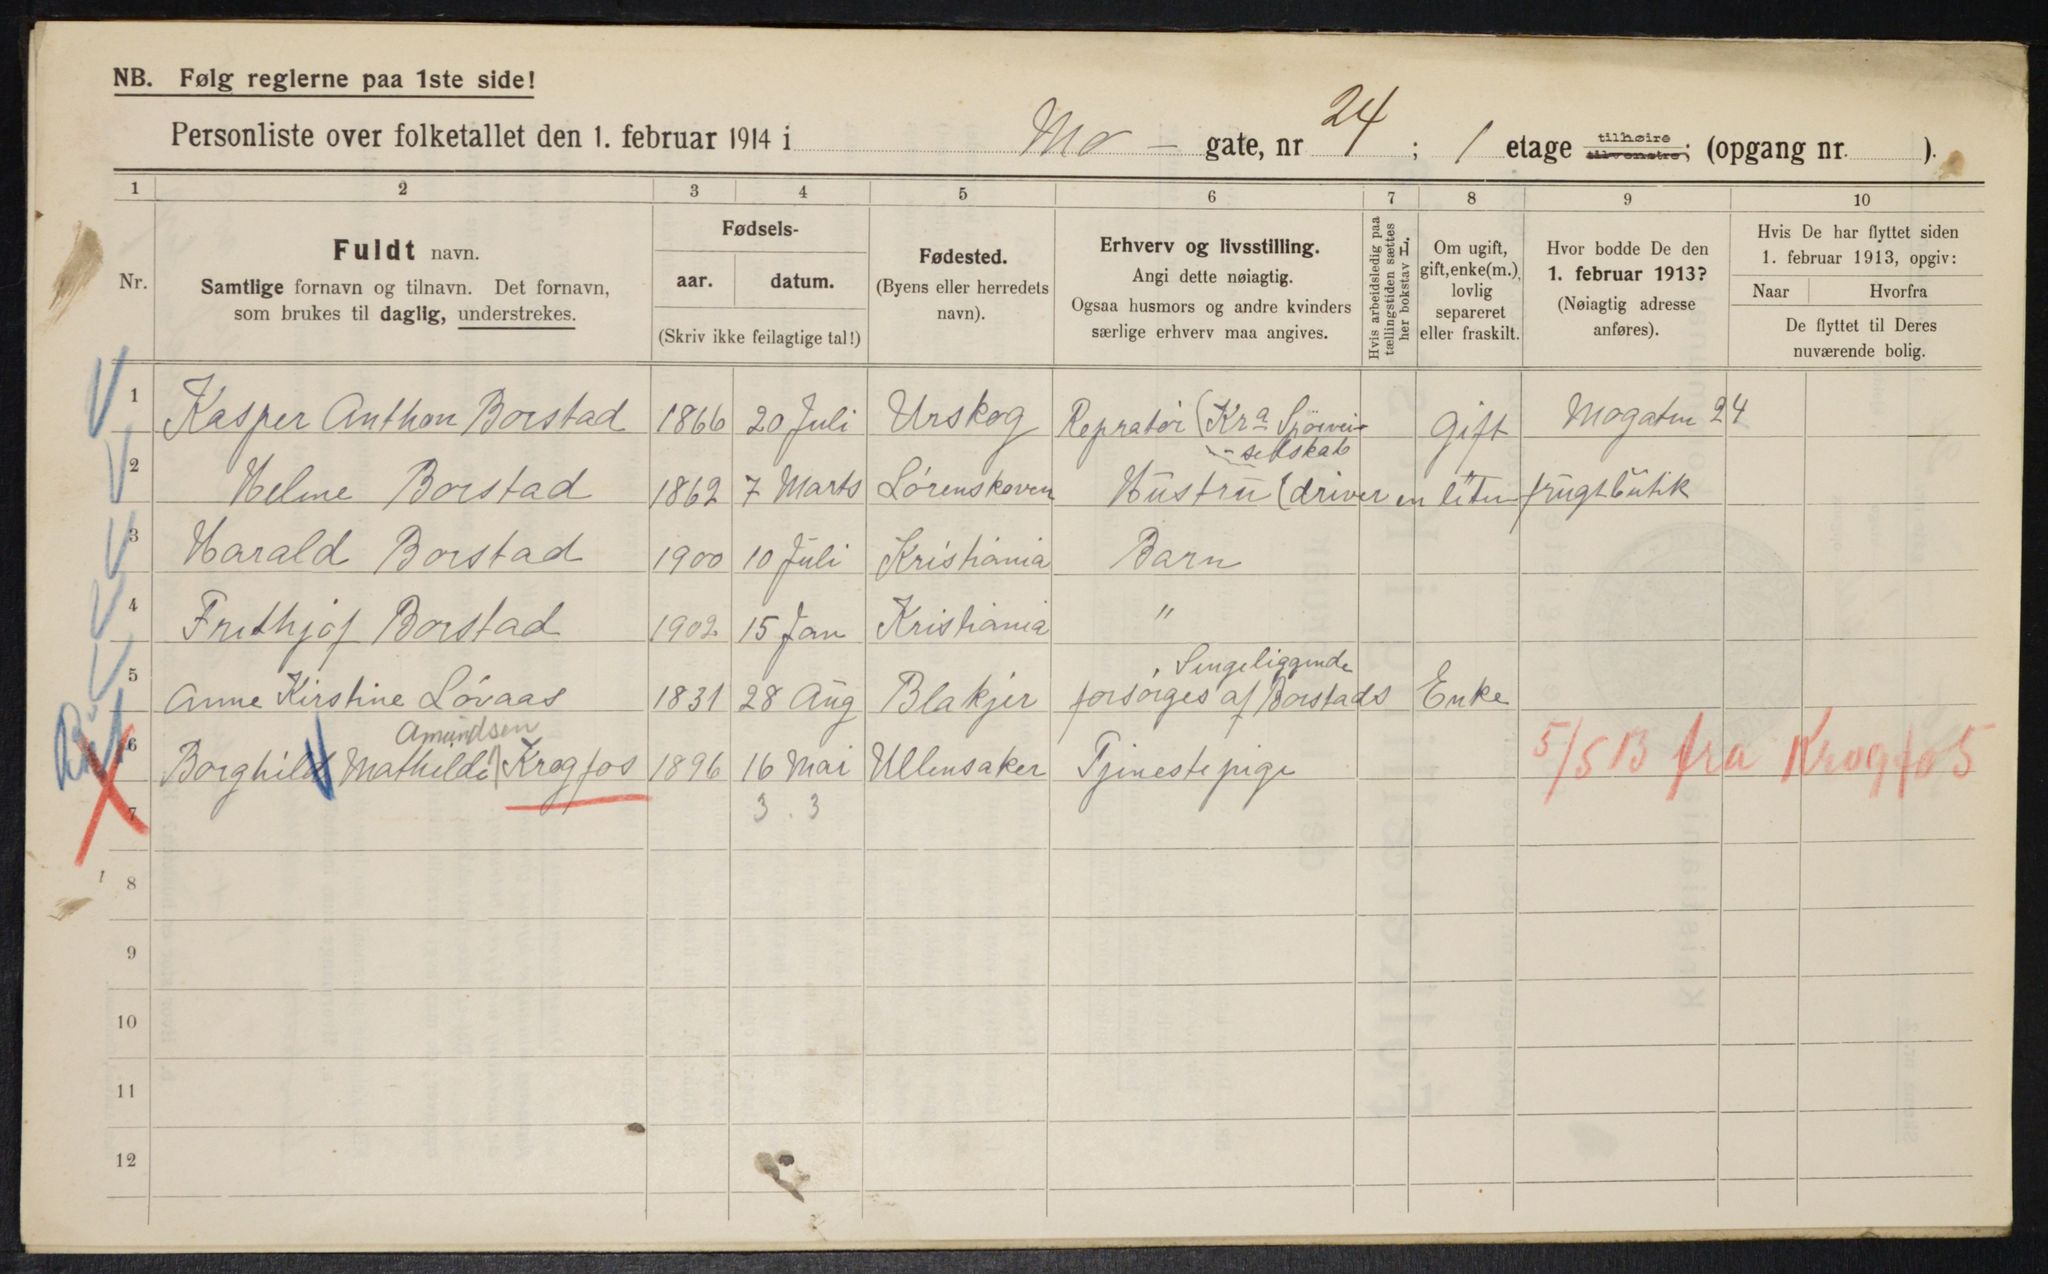 NB. Følg reglerne paa 1ste side!
Personliste over folketallet den 1. februar 1914 i Mo - gate, nr 24 ; 1 etage tilhøire tilvenstre; (opgang nr. ).
1 2 3 4 5 6 7 8 9 10
Nr.
Fuldt navn.
Samtlige fornavn og tilnavn. Det fornavn,
som brukes til daglig, understrekes.
Fødsels-
aar. datum.
(Skriv ikke feilagtige tal!)
Fødested.
(Byens eller herredets
navn).
Erhverv og livsstilling.
Angi dette nøiagtig.
Ogsaa husmors og andre kvinders
særlige erhverv maa angives.
Hvis arbeidsledig paa
tællingstiden sættes
her bokstav L.
Om ugift,
gift, enke(m.),
lovlig
separeret
eller fraskilt.
Hvor bodde De den
1. februar 1913?
(Nøiagtig adresse
anføres).
Hvis De har flyttet siden
1. februar 1913, opgiv:
Naar Hvorfra
De flyttet til Deres
nuværende bolig.
1 Kasper Anthon Borstad 1866 20 Juli Urskog Repratør (Kra Sporvei- Gift Mogaten 24
- selskab
2 Helme Borstad 1862 7 Marts Lørenskoven Hustru (driver en liten frugtbutik
3 Harald Borstad 1900 10 Juli Kristiania Barn
4 Frithjof Borstad 1902 15 Jan Kristiania "
Sengeliggende
5 Anne Kirstine Lövaas 1831 28 Aug Blakjer forsørges af Borstads Enke
Amundsen
6 Borghild Mathilde Krogfos 1896 16 Mai Ullensaker Tjenestepige 5/5 B fra Krogfos
7 3 . 3
8
9
10
11
12